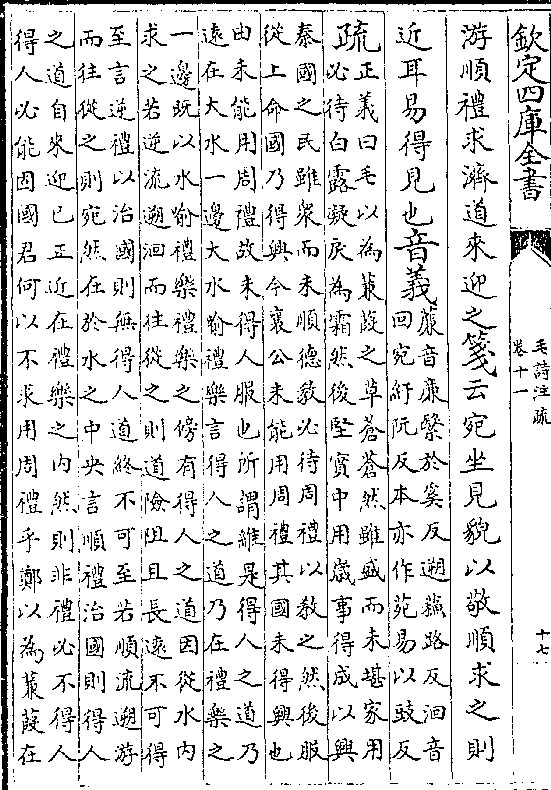 欽定四庫全書
毛詩注疏
卷十一
十七
游順禮求濟道來迎之箋云宛坐見貌以敬順求之則
近耳易得見也音義蒹音廉繄於奚反遡蘓路反洄音
回宛紆阮反本亦作苑易以豉反
疏正義曰毛以為蒹葭之草蒼蒼然雖盛而未堪家用
必待白露凝戾為霜然後堅實中用歳事得成以興
秦國之民雖衆而未順德教必待周禮以教之然後服
從上命國乃得興今襄公未能用周禮其國未得興也
由未能用周禮故未得人服也所謂維是得人之道乃
遠在大水一邊大水喻禮樂言得人之道乃在禮樂之
一邊既以水喻禮樂禮樂之傍有得人之道因從水内
求之若逆流遡洄而往從之則道險阻且長遠不可得
至言逆禮以治國則無得人道終不可至若順流遡游
而往從之則宛然在於水之中央言順禮治國則得人
之道自來迎已正近在禮樂之内然則非禮必不得人
得人必能固國君何以不求用周禮乎鄭以為蒹葭在